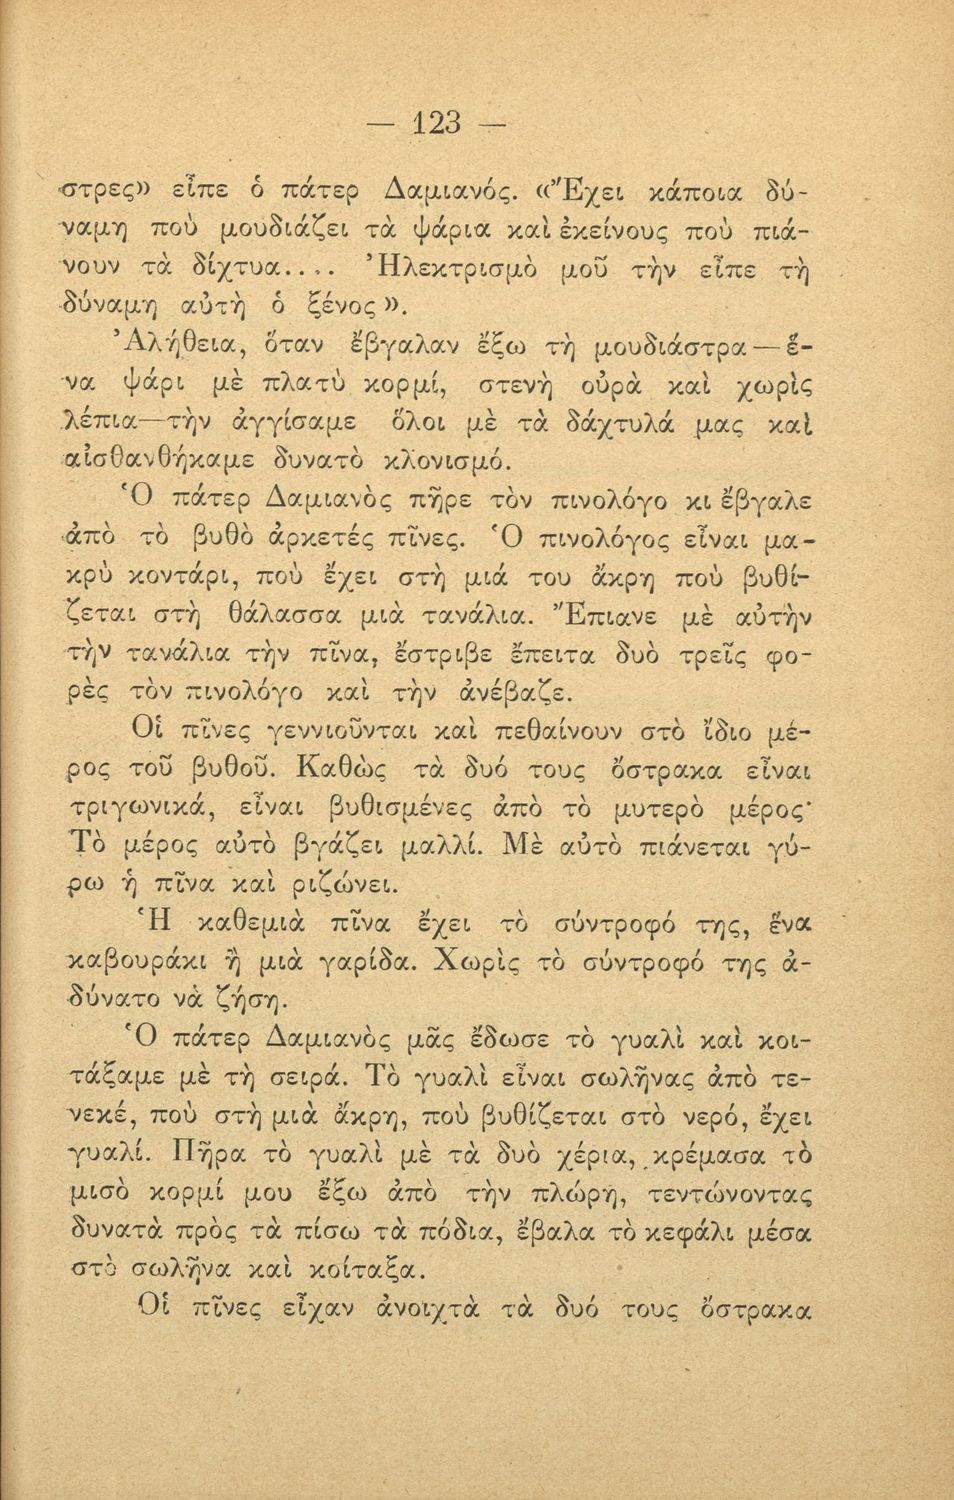 — 123 —
στρες» εἶπε ὁ πάτερ Δαμιανός. «Ἔχει κάποια δύ-
ναμη ποὺ μουδιάζει τὰ ψάρια καὶ ἐκείνους ποὺ πιά-
νουν τὰ δίχτυα.... Ἠλεκτρισμὸ μοῦ τὴν εἶπε τὴ
δύναμη αὐτὴ ὁ ξένος».
Ἀλήθεια, ὅταν ἔβγαλαν ἔξω τὴ μουδιάστρα — ἕ-
να ψάρι μὲ πλατὺ κορμί, στενὴ οὐρὰ καὶ χωρὶς
λέπια—τὴν ἀγγίσαμε ὅλοι μὲ τὰ δάχτυλά μας καὶ
αἰσθανθήκαμε δυνατὸ κλονισμό.
Ὁ πάτερ Δαμιανὸς πῆρε τὸν πινολόγο κι ἔβγαλε
ἀπὸ τὸ βυθὸ ἀρκετές πῖνες. Ὁ πινολόγος εἶναι μα-
κρὺ κοντάρι, ποὺ ἔχει στὴ μιά του ἄκρη ποὺ βυθί-
ζεται στὴ θάλασσα μιὰ τανάλια. Ἔπιανε μὲ αὐτὴν
τὴν τανάλια τὴν πῖνα, ἔστριβε ἔπειτα δυὸ τρεῖς φο-
ρὲς τὸν πινολόγο καὶ τὴν ἀνέβαζε.
Οἱ πῖνες γεννιοῦνται καὶ πεθαίνουν στὸ ἴδιο μέ-
ρος τοῦ βυθοῦ. Καθὼς τὰ δυό τους ὄστρακα εἶναι
τριγωνικά, εἶναι βυθισμένες ἀπὸ τὸ μυτερὸ μέρος·
Τὸ μέρος αὐτὸ βγάζει μαλλί. Μὲ αὐτὸ πιάνεται γύ-
ρω ἡ πῖνα καὶ ριζώνει.
Ἡ καθεμιὰ πῖνα ἔχει τὸ σύντροφό της, ἕνα
καβουράκι ἢ μιὰ γαρίδα. Χωρὶς τὸ σύντροφό της ἀ-
δύνατο νὰ ζήση.
Ὁ πάτερ Δαμιανὸς μᾶς ἔδωσε τὸ γυαλὶ καὶ κοι-
τάξαμε μὲ τὴ σειρά. Τὸ γυαλὶ εἶναι σωλῆνας ἀπὸ τε-
νεκέ, ποὺ στὴ μιὰ ἄκρη, ποὺ βυθίζεται στὸ νερό, ἔχει
γυαλί. Πῆρα τὸ γυαλὶ μὲ τὰ δυὸ χέρια, κρέμασα τὸ
μισὸ κορμί μου ἔξω ἀπὸ τὴν πλώρη, τεντώνοντας
δυνατὰ πρὸς τὰ πίσω τὰ πόδια, ἔβαλα τὸ κεφάλι μέσα
στὸ σωλῆνα καὶ κοίταξα.
Οἱ πῖνες εἶχαν ἀνοιχτὰ τὰ δυό τους ὄστρακα